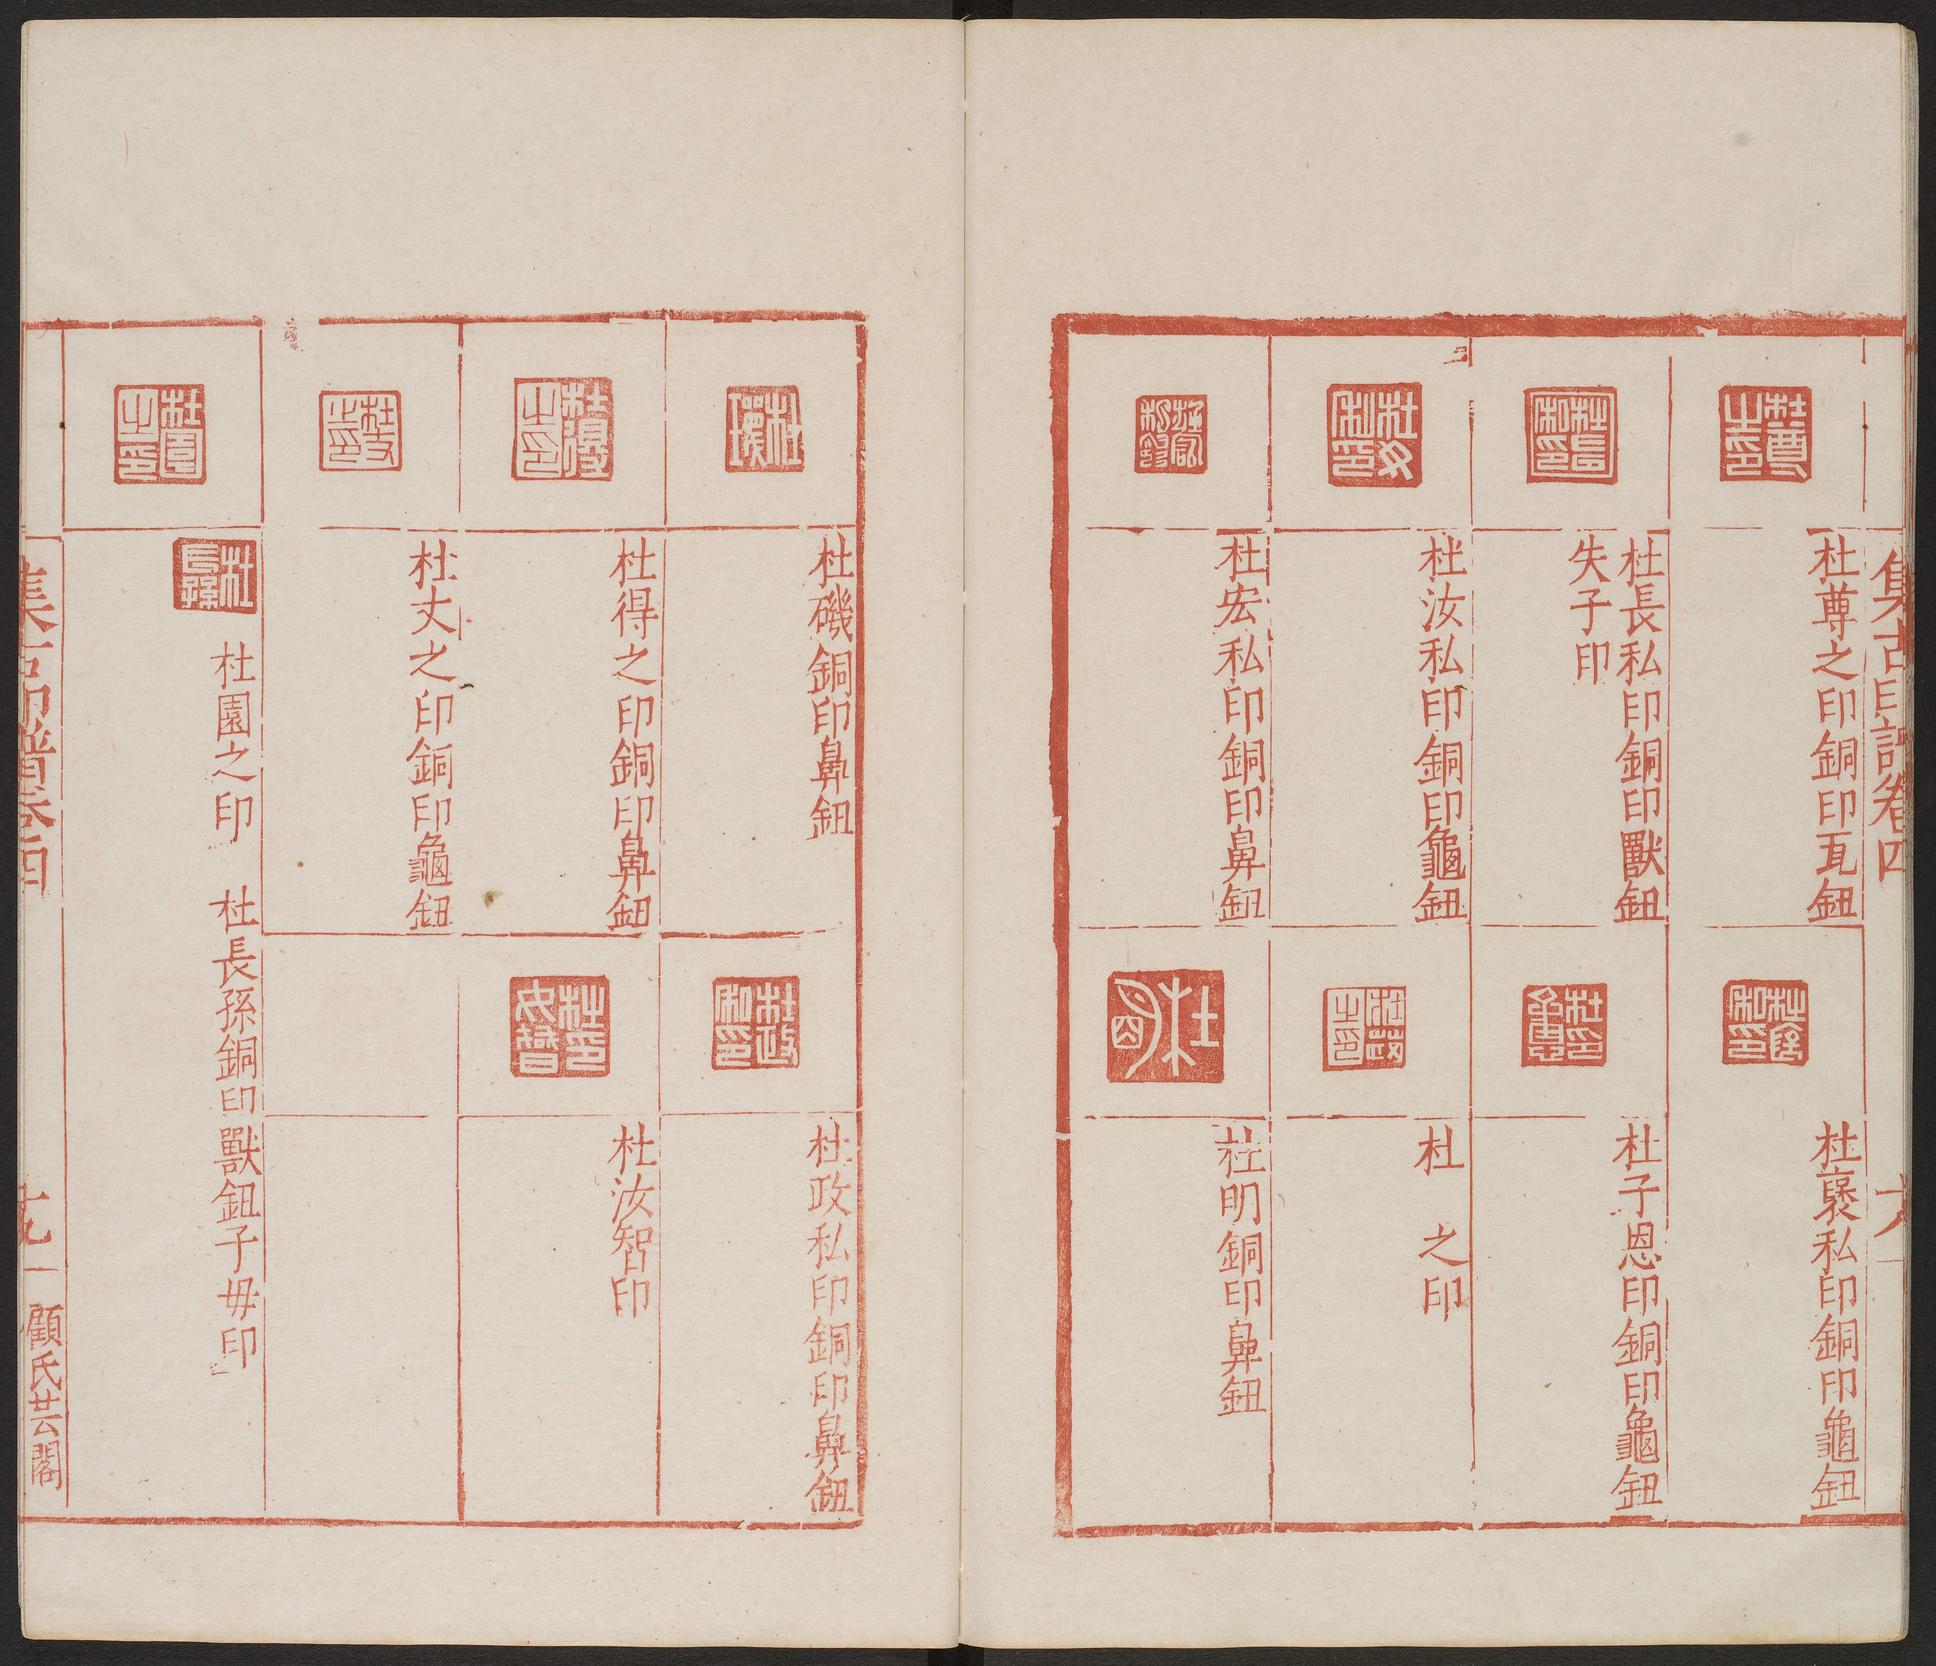 集古印譜卷四
杜尊之印銅印瓦鈕
杜長私印銅印獸鈕
失子印
杜汝私印銅印龜鈕
杜宏私印銅印鼻鈕
杜襃私印銅印龜鈕
杜子恩印銅印龜鈕
杜 之印
杜明銅印鼻鈕
杜磯銅印鼻鈕
杜得之印銅印鼻鈕
杜丈之印銅印龜鈕
杜園之印 杜長孫銅印獸鈕子母印
杜政私印銅印鼻鈕
杜汝智印
集古印譜卷四
十九
顧氏芸閣